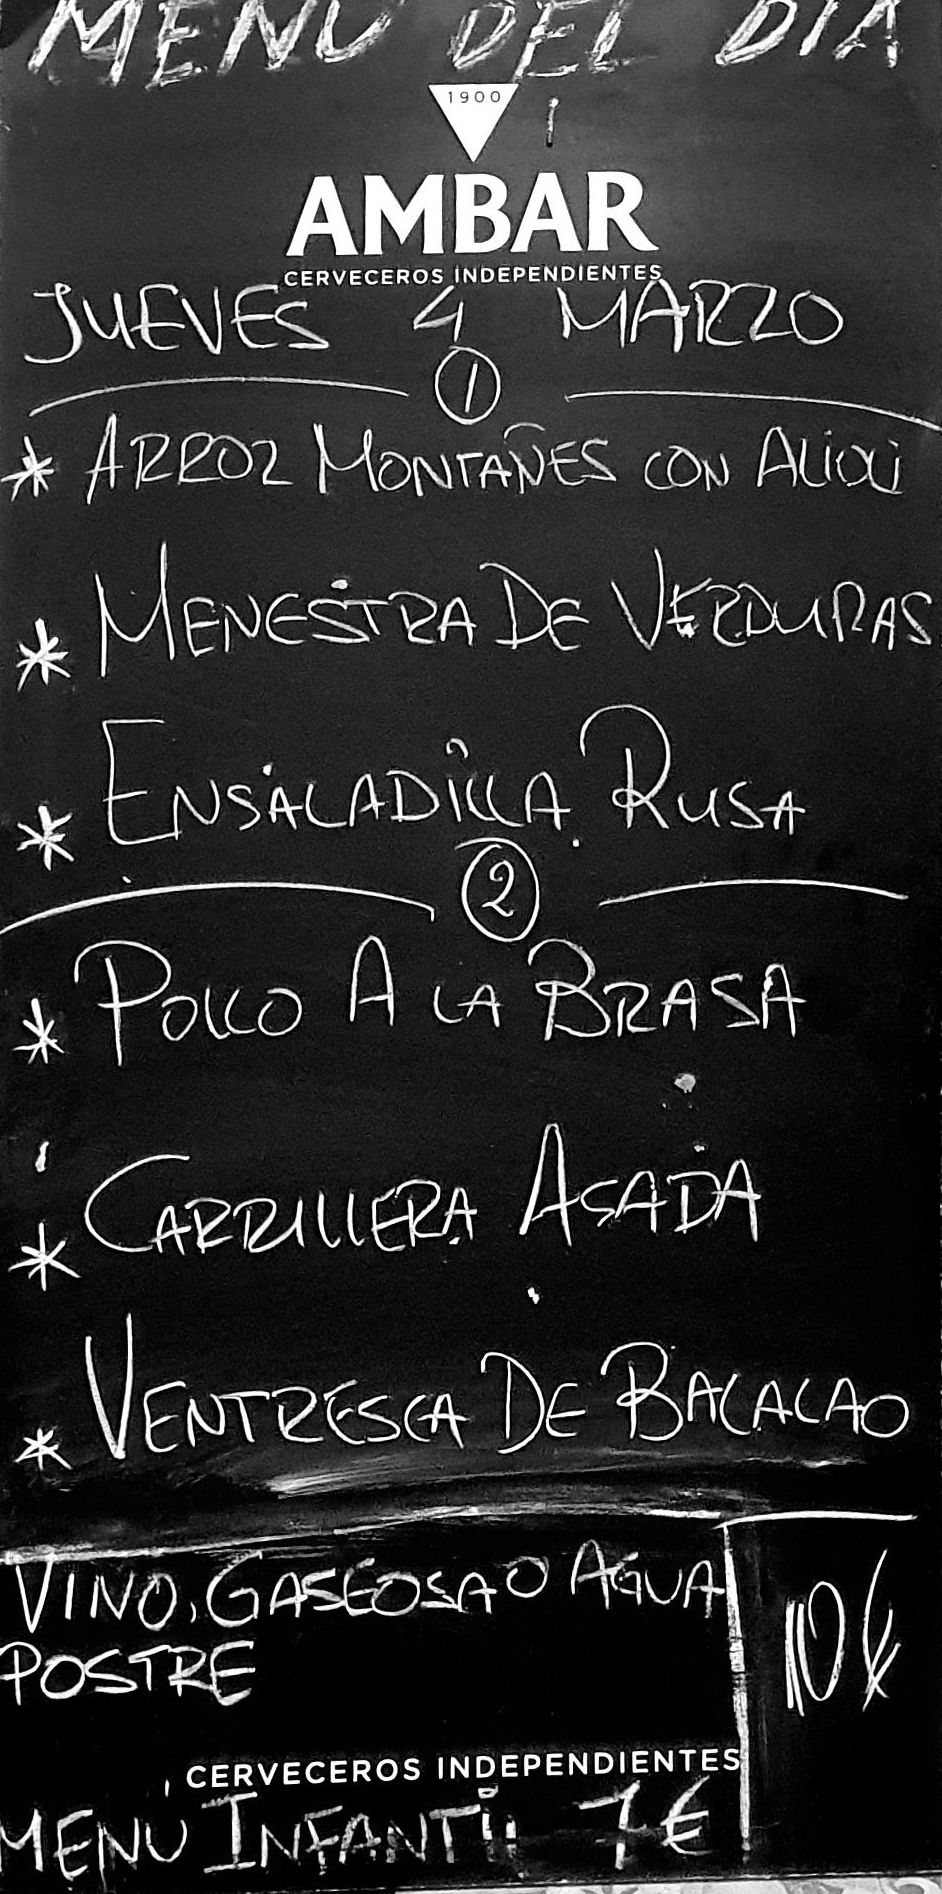 MENU DEL DIA
1900
AMBAR
CERVECEROS INDEPENDIENTES
JUEVES 4 MARZO
1
* ARROZ MONTAÑES CON ALIOLI
* MENESTRA DE VERDURAS
* ENSALADILLA RUSA
2
* POLLO A LA BRASA
* CARRILLERA ASADA
* VENTRESCA DE BACALAO
VINO, GASEOSA O AGUA
POSTRE
10€
CERVECEROS INDEPENDIENTES
MENU INFANTIL 7€